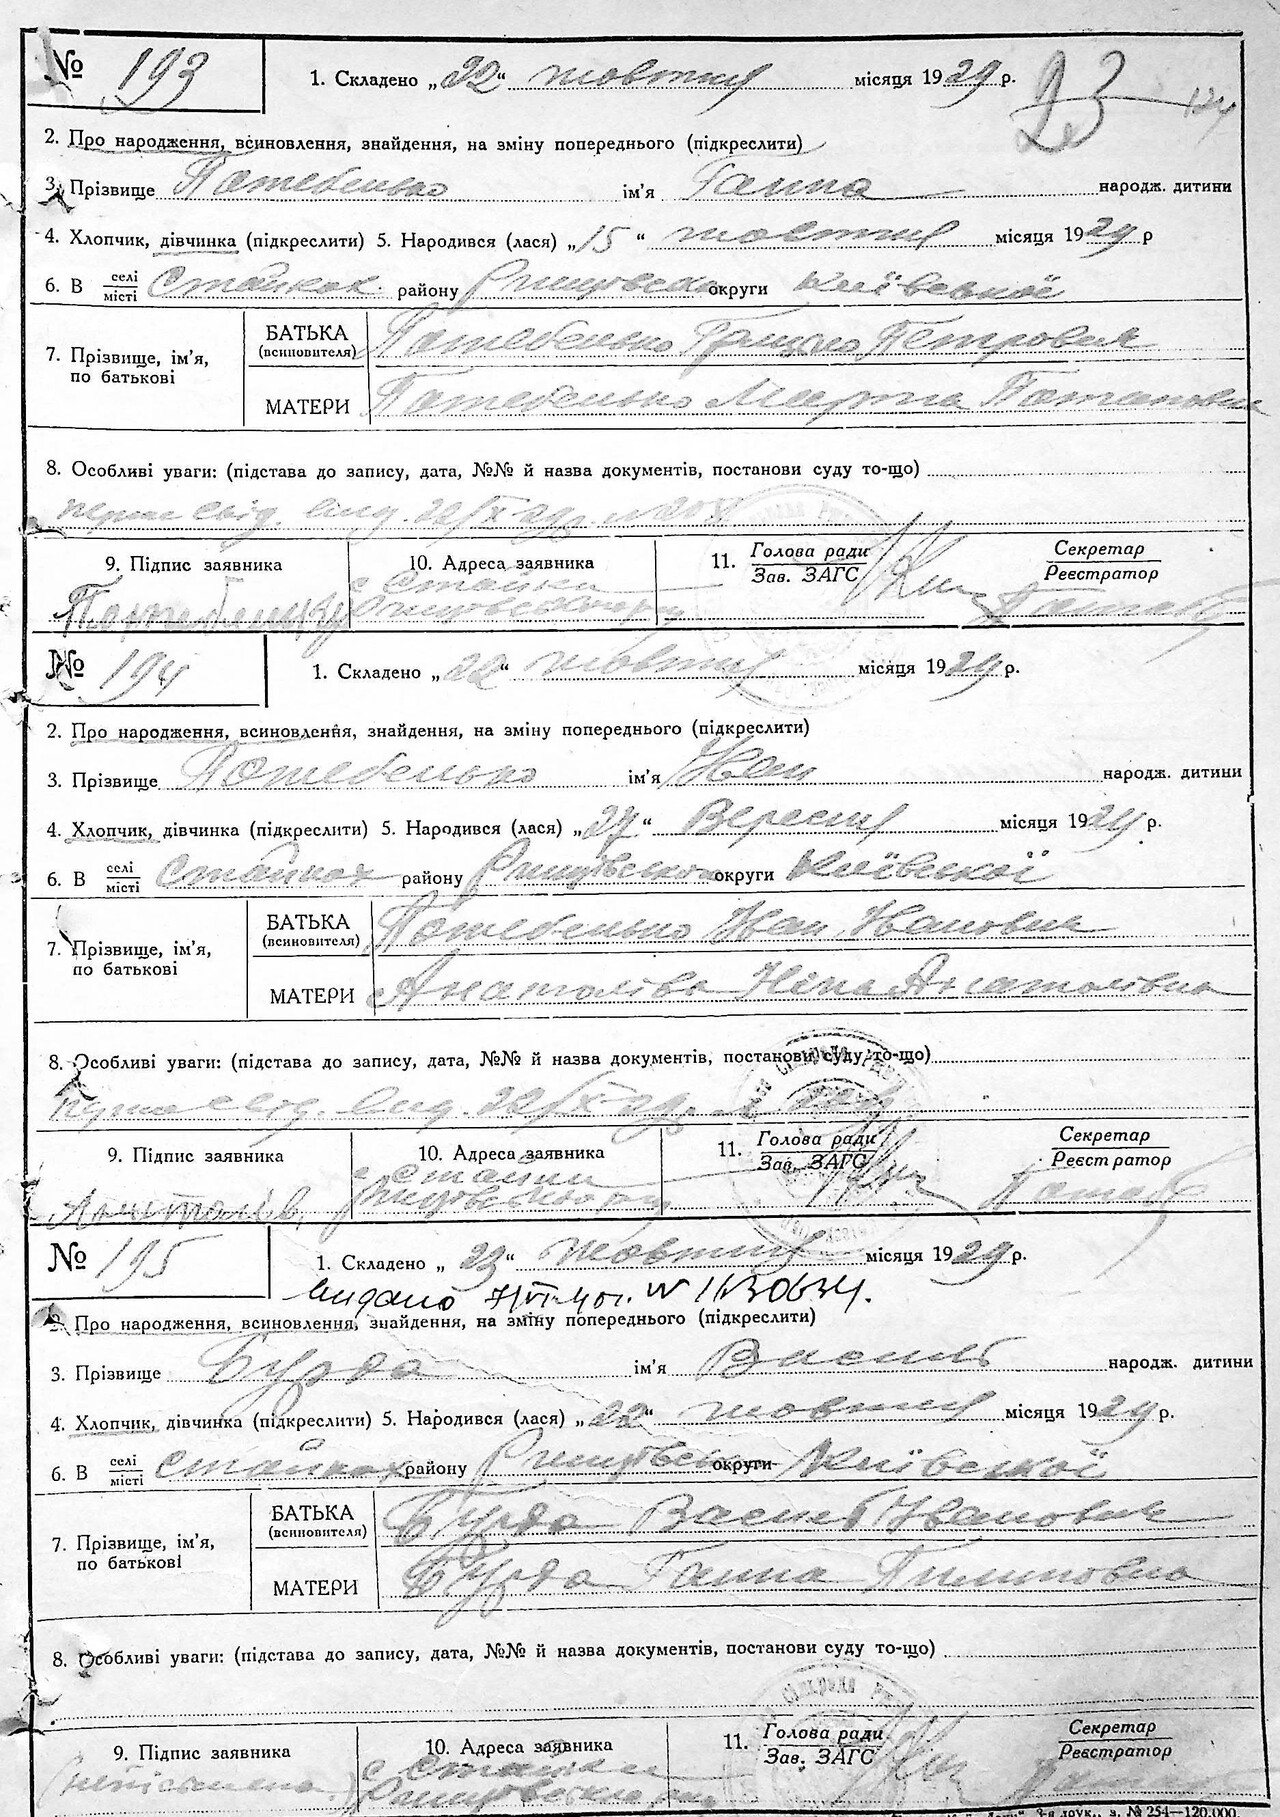 № 193 1. Складено „22“ жовтня місяця 1929 р. 23
2. Про народження, всиновлення, знайдення, на зміну попереднього (підкреслити)
3. Прізвище Потебенько ім'я Ганна народж. дитини
4. Хлопчик, дівчинка (підкреслити) 5. Народився (лася) „15“ жовтня місяця 1929 р
6. В селі місті Стайках району Ржищівськ округи Київської
7. Прізвище, ім'я, по батькові
БАТЬКА (всиновителя) Потебенько Грицько Петрович
МАТЕРИ Потебенько Марта Потаповна
8. Особливі уваги: (підстава до запису, дата, №№ й назва документів, постанови суду то-що)
свід. вид. 22/X-29р. №
9. Підпис заявника 10. Адреса заявника 11. Голова ради Зав. ЗАГС Секретар Реєстратор
с Стайки
№ 194 1. Складено „22“ жовтня місяця 1929 р.
2. Про народження, всиновлення, знайдення, на зміну попереднього (підкреслити)
3. Прізвище Потебенько ім'я Іван народж. дитини
4. Хлопчик, дівчинка (підкреслити) 5. Народився (лася) „27“ Вересня місяця 1929 р.
6. В селі місті Стайках району Ржищівського округи Київської
7. Прізвище, ім'я, по батькові
БАТЬКА (всиновителя) Потебенько Іван Іванович
МАТЕРИ Анатоліва Ніна Анатолівна
8. Особливі уваги: (підстава до запису, дата, №№ й назва документів, постанови суду то-що)
свід. вид. 22/X-29р. №
9. Підпис заявника 10. Адреса заявника 11. Голова ради Зав. ЗАГС Секретар Реєстратор
с Стайки
№ 195 1. Складено „23“ жовтня місяця 1929 р.
видано
2. Про народження, всиновлення, знайдення, на зміну попереднього (підкреслити)
3. Прізвище Бурда ім'я Василь народж. дитини
4. Хлопчик, дівчинка (підкреслити) 5. Народився (лася) „22“ жовтня місяця 1929 р.
6. В селі місті Стайках району Ржищівськ округи Київської
7. Прізвище, ім'я, по батькові
БАТЬКА (всиновителя) Бурда Василь Іванович
МАТЕРИ Бурда Ганна Пилиповна
8. Особливі уваги: (підстава до запису, дата, №№ й назва документів, постанови суду то-що)
9. Підпис заявника 10. Адреса заявника 11. Голова ради Зав. ЗАГС Секретар Реєстратор
неписьмена с Стайки
з. № 254—120.000